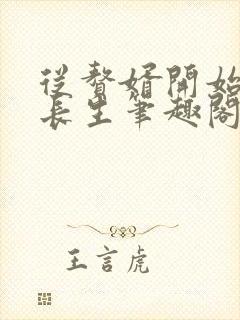 從贅婿開始
長生筆趣閣
王言虎